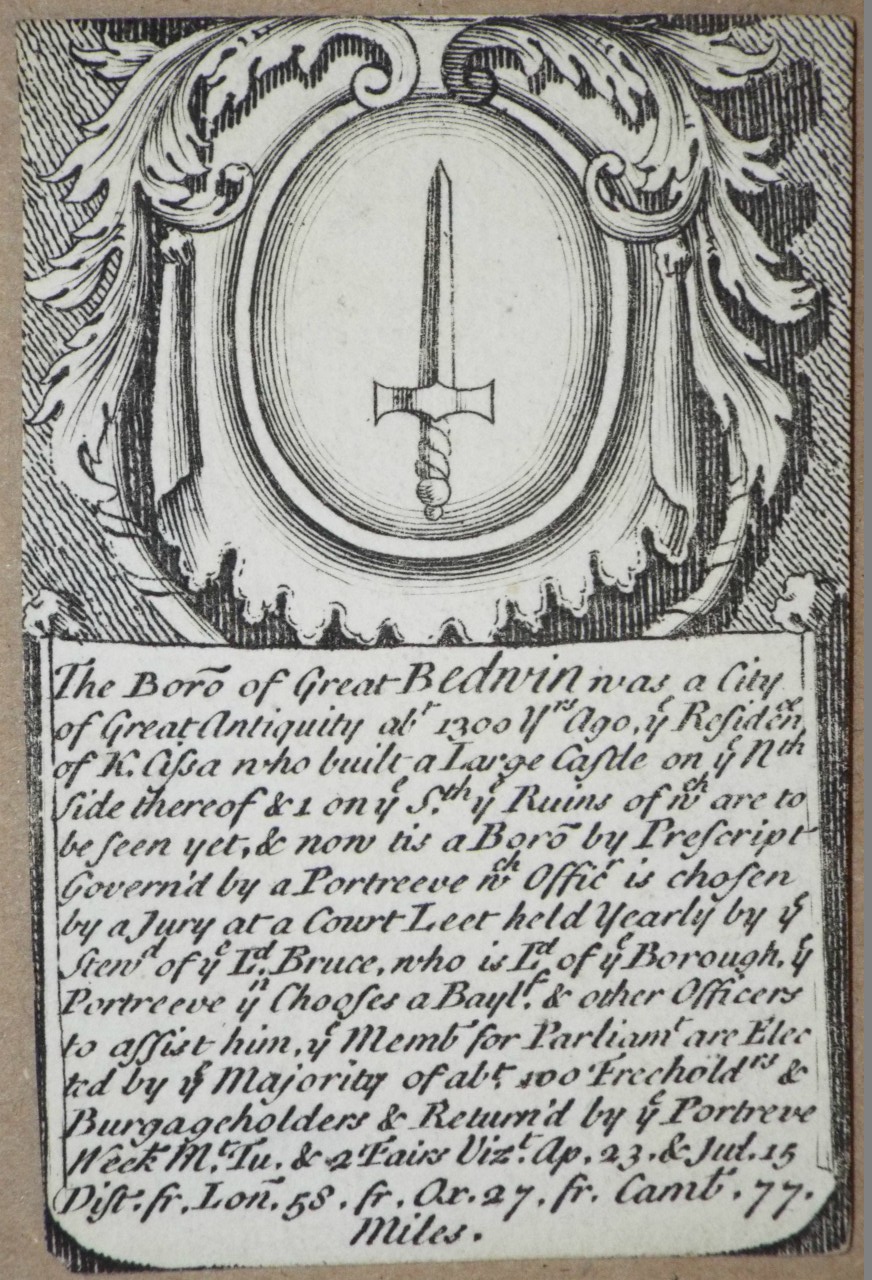 The Borõ of Great Bedwin was a City
of Great Antiquity abᵗ 1300 Yʳˢ Ago, yᵉ Residēnᶜᵉ
of K. Cißa who built a Large Caſtle on yᵉ Nᵗʰ
ſide thereof & 1 on yᵉ S.ᵗʰ yᵉ Ruins of wᶜʰ are to
be ſeen yet, & now tis a Borõ by Preſcript
Govern'd by a Portreeve wᶜʰ Officʳ is choſen
by a Jury at a Court Leet held Yearly by yᵉ
Stewᵈ of yᵉ Lᵈ. Bruce, who is Lᵈ of yᵉ Borough, yᵉ
Portreeve yⁿ Chooſes a Baylᶠ. & other Officers
to aſſist him, yᵉ Membˢ for Parliamᵗ are Elec
ted by yᵉ Majority of abᵗ. 100 Freeholdʳˢ &
Burgageholders & Return'd by yᵉ Portreve
Week Mᵗ. Tu. & 2 Fairs Vizᵗ. Ap. 23. & Jul. 15
Diſt. fr. Lon̄. 58. fr. Ox. 27. fr. Camb. 77.
Miles.